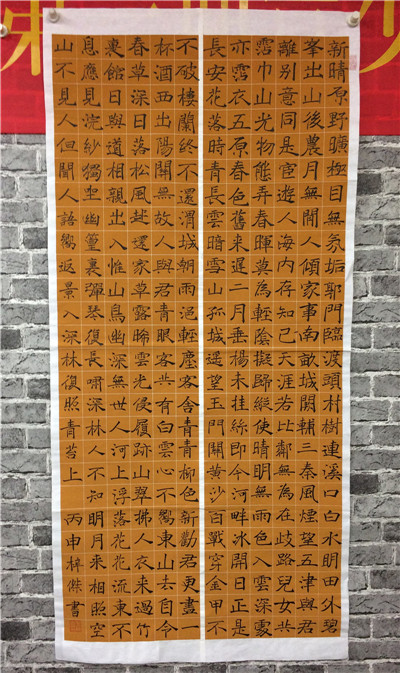 新晴原野曠極目無氛垢郭門臨渡頭村樹連溪口白水明田外碧
峯出山後農月無閒人傾家事南畝城闕輔三秦風煙望五津與君
離別意同是宦遊人海內存知己天涯若比鄰無為在歧路兒女共
霑巾山光物態弄春暉莫為輕陰擬歸縱使晴明無雨色入雲深處
亦霑衣五原春色舊來遲二月垂楊未挂絲即今河畔冰開日正是
長安花落時青長雲暗雪山孤城遙望玉門關黃沙百戰穿金甲不
不破樓蘭終不還渭城朝雨浥輕塵客舍青青柳色新勸君更盡
杯酒西出陽關無故人與君青眼客共有白雲心不嚮東山去自今
春草深日落松風起還家草露晞雲光侵履跡山翠拂人衣來過竹
裏館日與道相親出入惟山鳥幽深無世人河上浮落花花流東不
息應見浣紗獨坐幽篁裏彈琴復長嘯深林人不知明月來相照空
山不見人但聞人語嚮返景入深林復照青苔上 丙申梓傑書